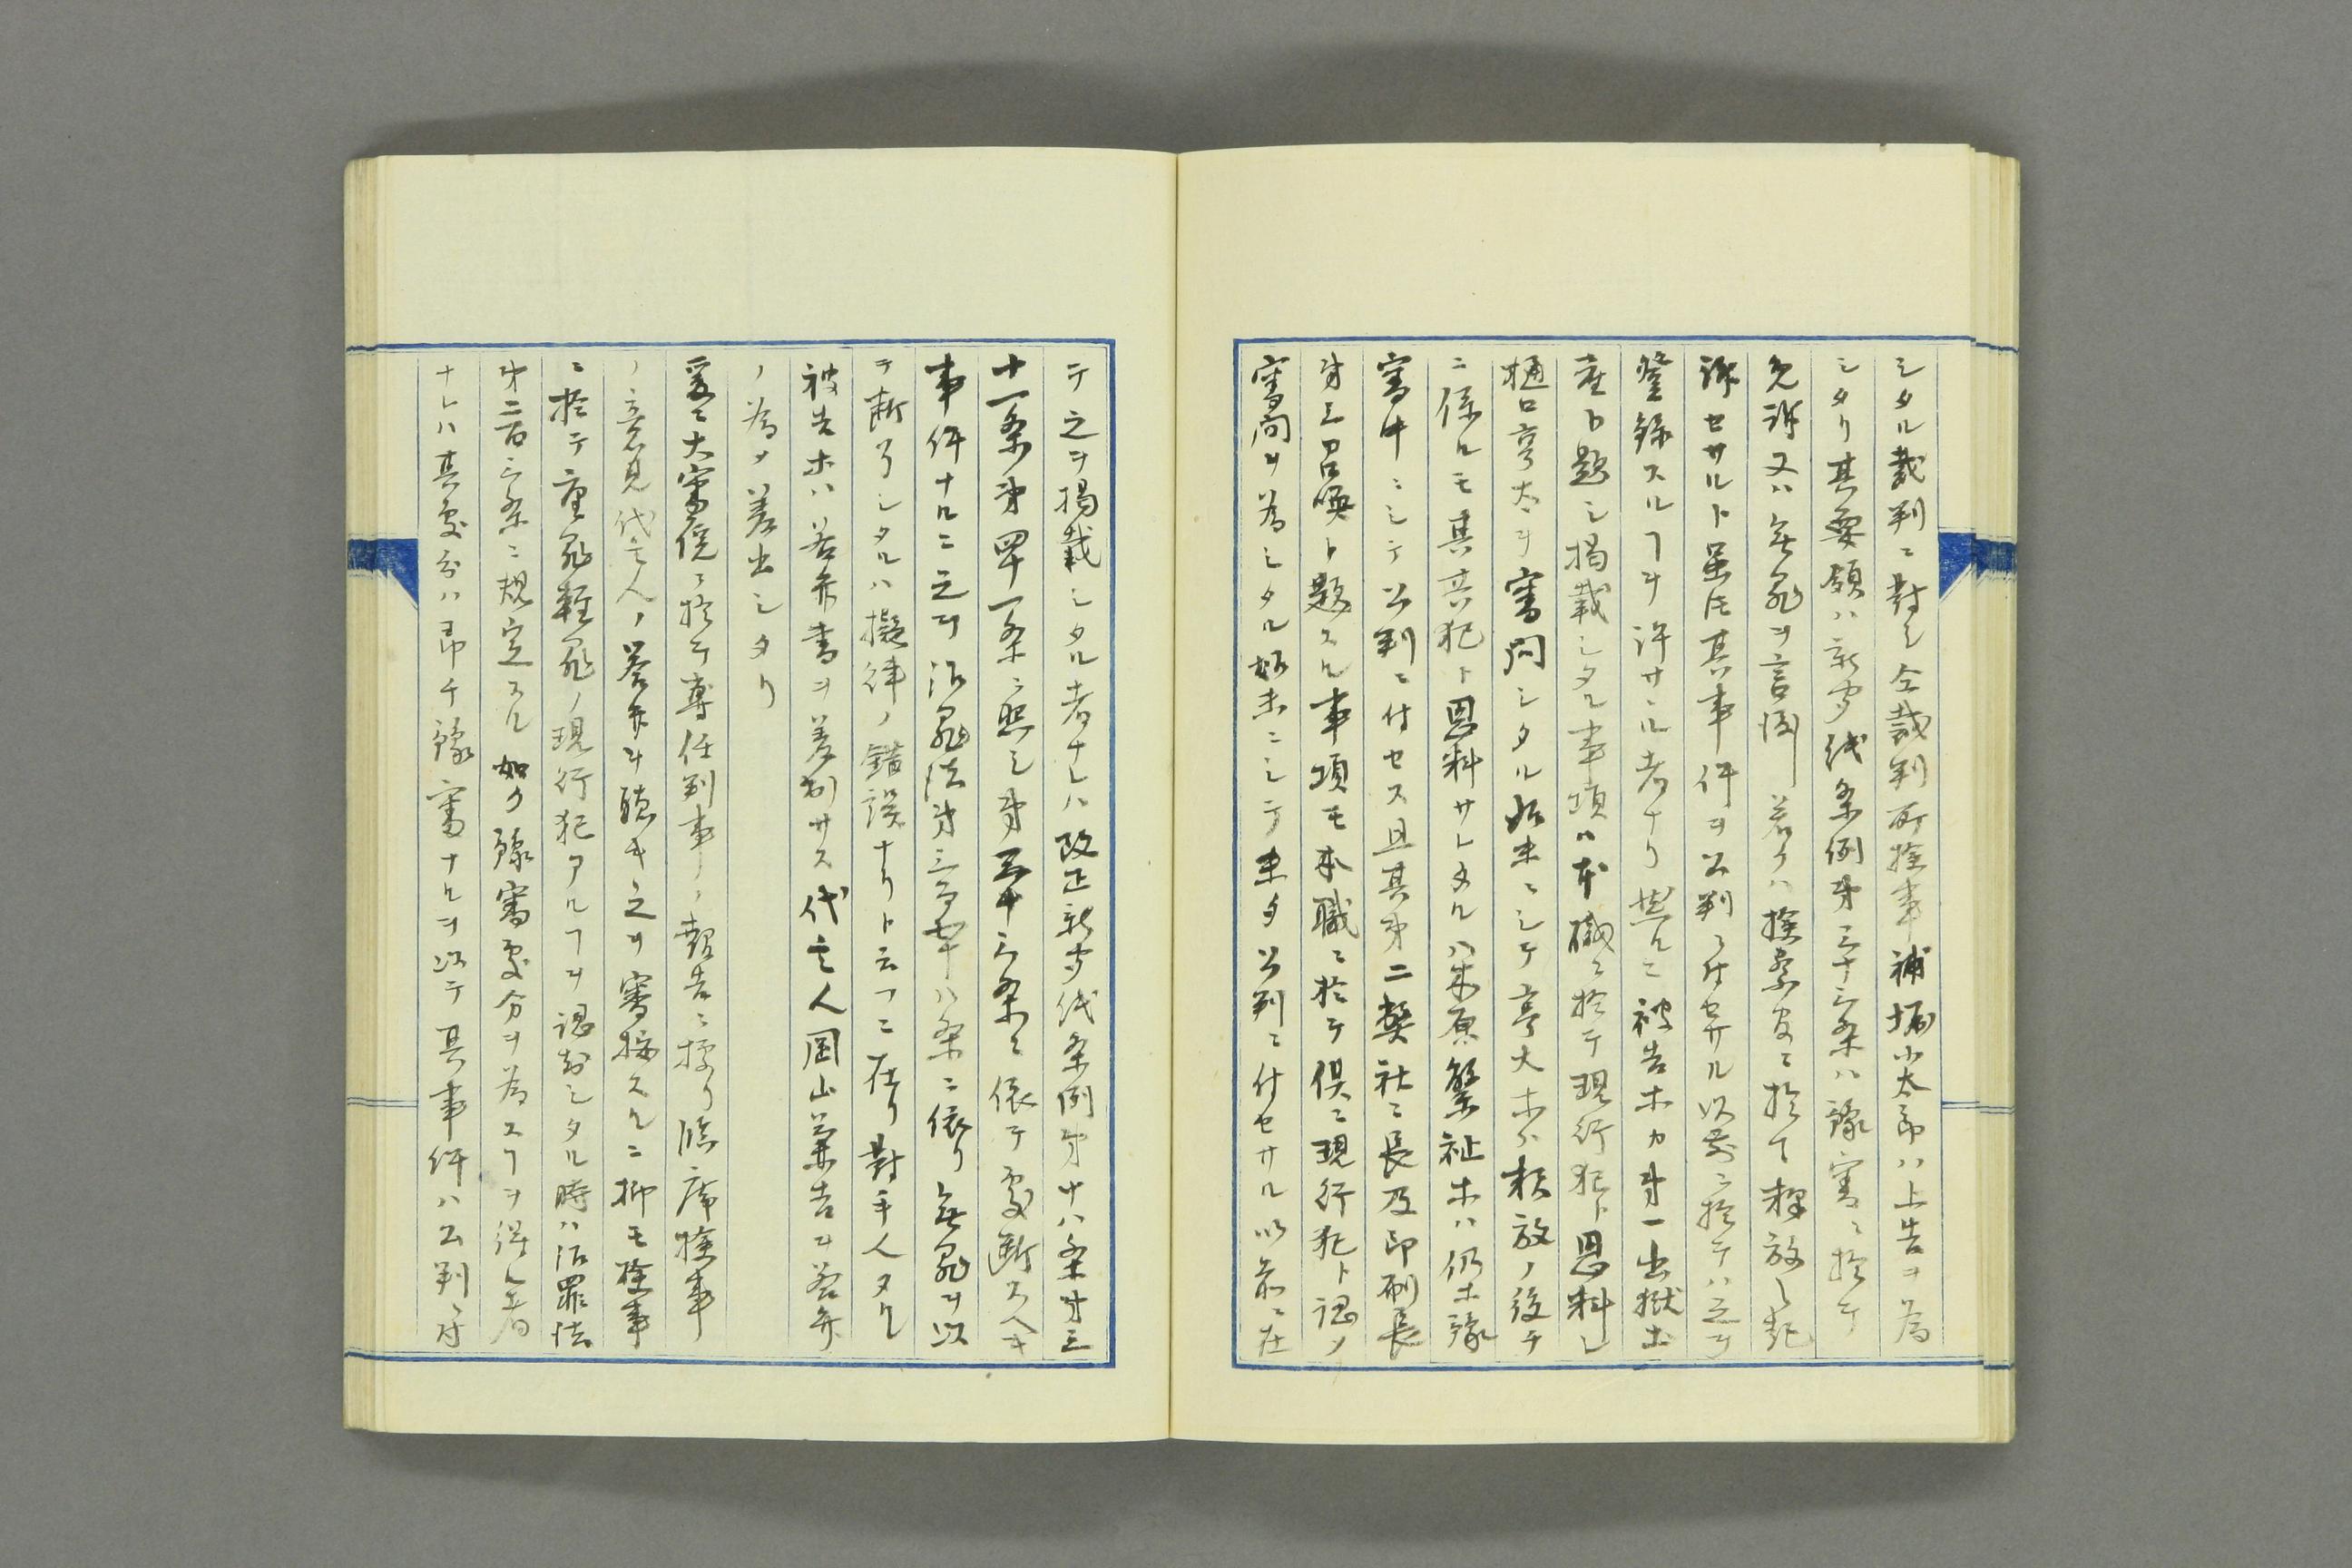 シタル裁判ニ對シ仝裁判所撿事補堀小太郎ハ上告ヲ為
シタリ其要領ハ新聞紙条例第三十三条ハ豫審ニ於テ
免訴又ハ無罪ヲ言渡シ若クハ撿察官ニ於テ釋放シ起
訴セサルト虽𪜈其事件ヲ公判ニ付セサル以前ニ於テハ之ヲ
登録スルヿヲ許サヽル者ナリ然ルニ被告ホカ第一出獄土
産ト題シ掲載シタル事項ハ本職ニ於テ現行犯ト思料シ
樋口亨太ヲ審問シタル始末ニシテ亨太ホハ釈放ノ後チ
ニ係ルモ其共犯ト思料サレタル八木原繁祉ホハ仍ホ豫
審中ニシテ公判ニ付セス且其第二奬社々長及印刷長
第三召喚ト題スル事項モ本職ニ於テ俱ニ現行犯ト認メ
審問ヲ為シタル始末ニシテ未タ公判ニ付セサル以前ニ在
テ之ヲ掲載シタル者ナレハ改正新聞紙条例第十八条第三
十一条第四十一条ニ照シ第三十三条ニ依テ處断スヘキ
事件ナルニ之ヲ治罪法第三百五十八条ニ依リ無罪ヲ以
テ断了シタルハ擬律ノ錯誤ナリト云フニ在リ對手人タル
被告ホハ答弁書ヲ差出サス代言人岡山兼吉ヲ答弁
ノ為メ差出シタリ
爰ニ大審院ニ於テ專任判事ノ報告ニ拠リ臨席撿事
ノ意見代言人ノ答弁ヲ聴キ之ヲ審按スルニ抑モ撿事
ニ於テ重罪輕罪ノ現行犯アルヿヲ認知シタル時ハ治罪法
第二百三条ニ規定スル如ク豫審處分ヲ為スヿヲ得ル者
ナレハ其處分ハ即チ豫審ナルヲ以テ其事件ハ公判ニ付